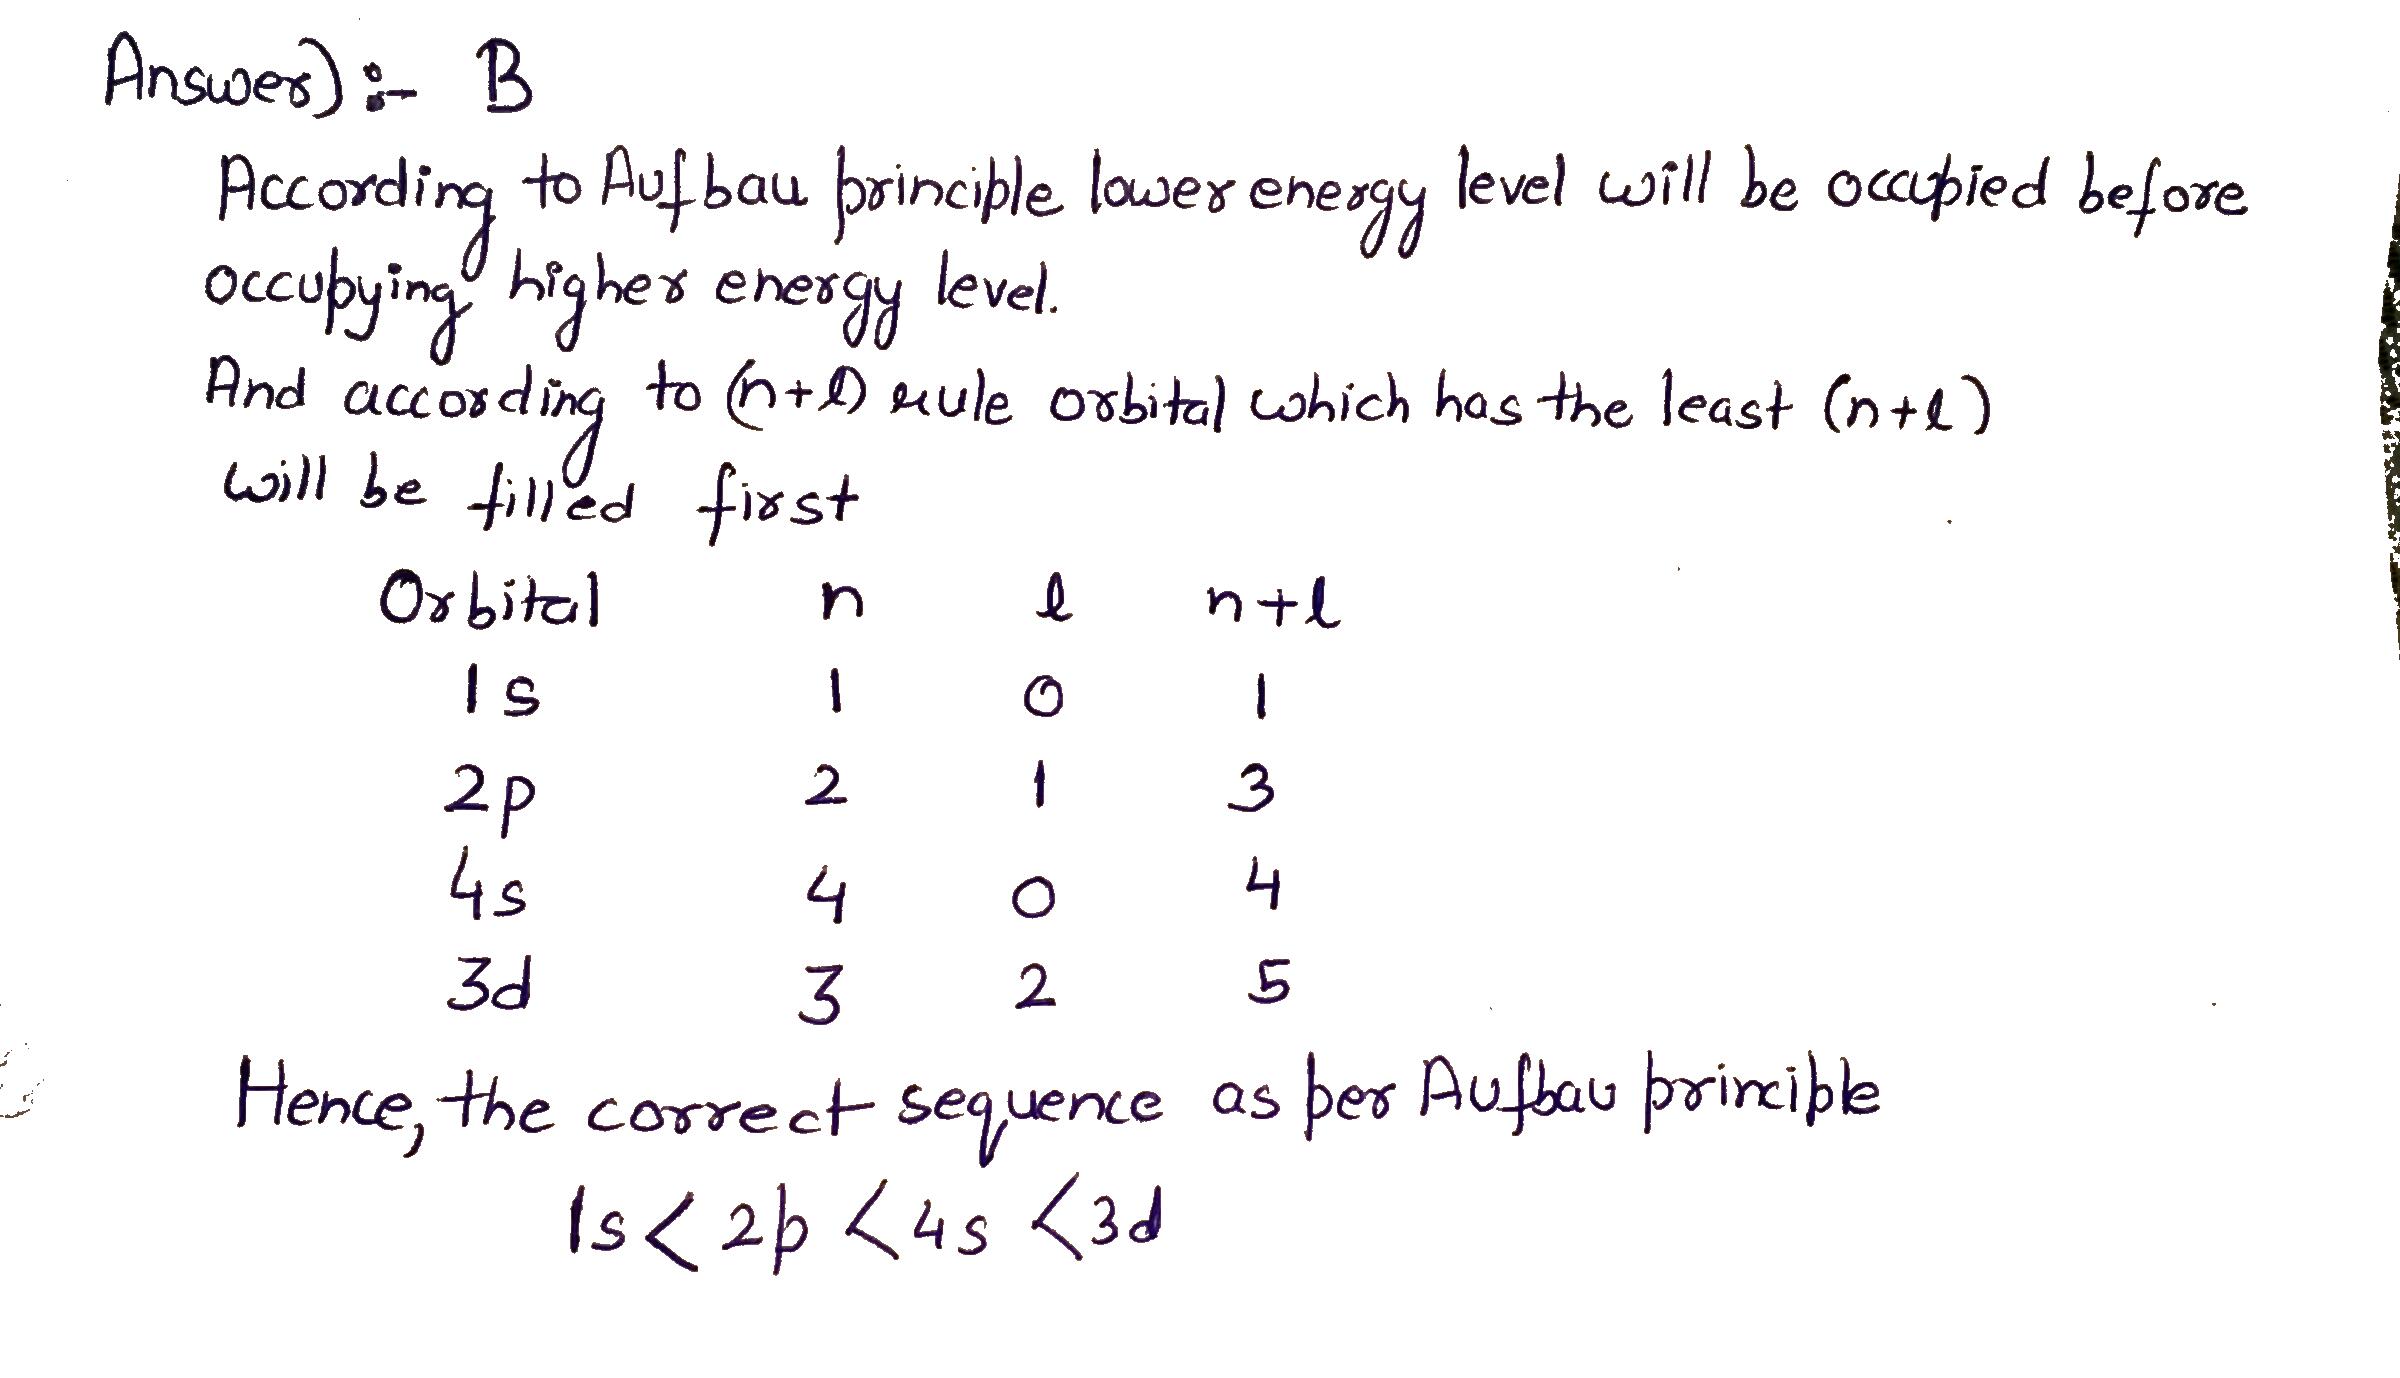 Answer) :- B
According to Aufbau principle lower energy level will be occupied before
occupying higher energy level.
And according to (n+l) rule orbital which has the least (n+l)
will be filled first
Orbital n l n+l
1s 1 0 1
2p 2 1 3
4s 4 0 4
3d 3 2 5
Hence, the correct sequence as per Aufbau principle
1s < 2p < 4s < 3d